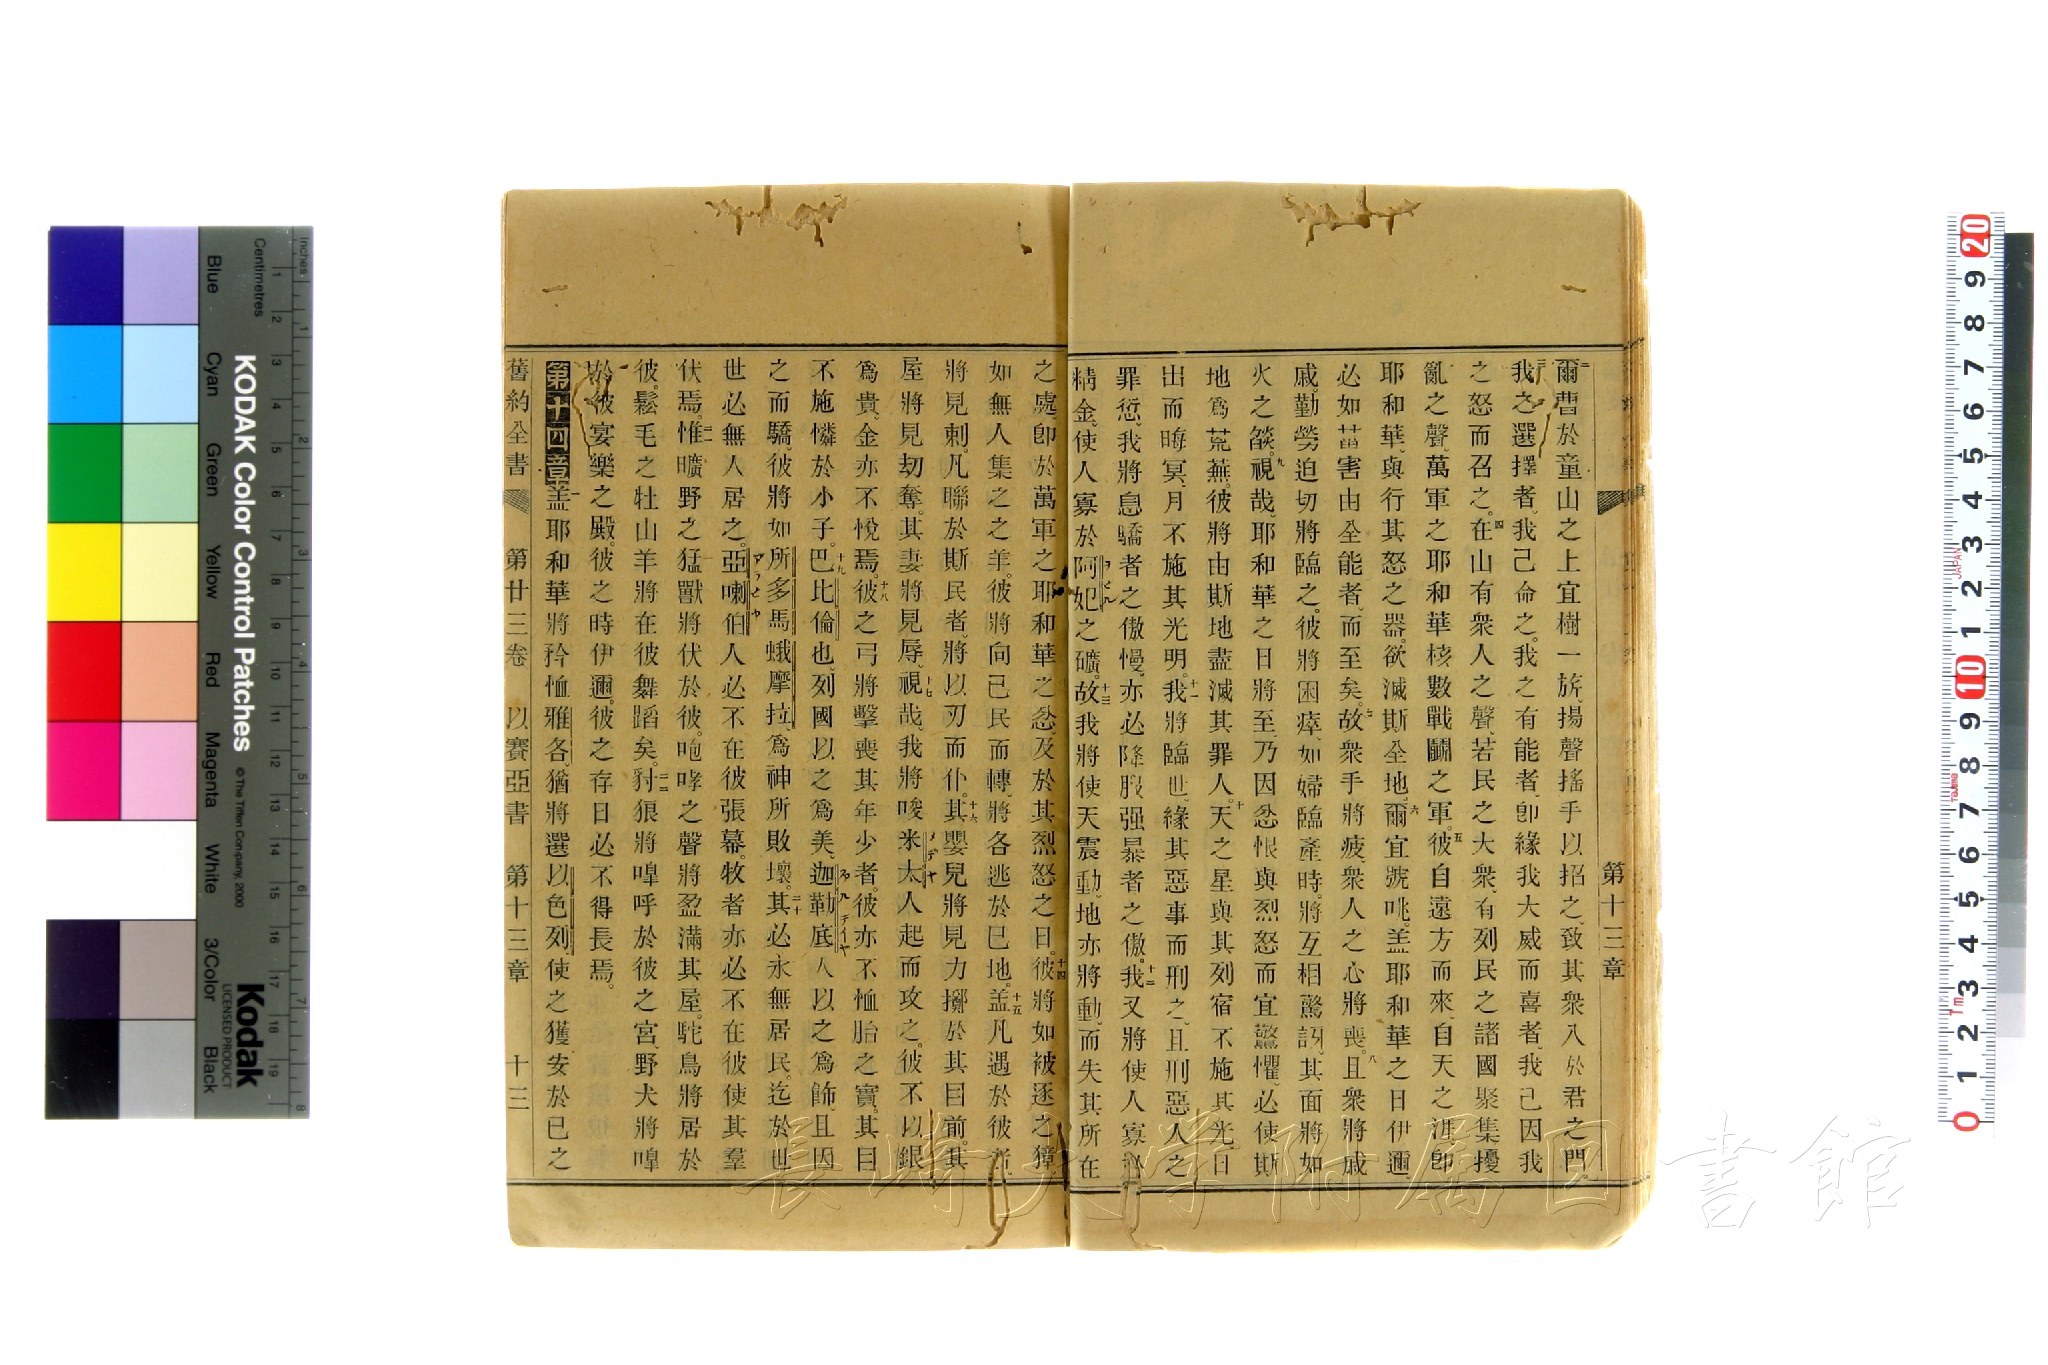 第十三章
二爾曹於童山之上宜樹一旂、揚聲搖手以招之、致其衆入於君之門、
三我之選擇者、我己命之。我之有能者、卽緣我大威而喜者、我已因我
之怒而召之。四在山有衆人之聲、若民之大衆、有列民之諸國聚集擾
亂之聲、萬軍之耶和華核數戰鬭之軍。五彼自遠方而來、自天之涯、卽
耶和華、與行其怒之器、欲滅斯全地。六爾宜號咷。盖耶和華之日伊邇、
必如菑害由全能者、而至矣。七故衆手將疲、衆人之心將喪。八且衆將戚
戚。勤勞迫切將臨之。彼將困瘁、如婦臨產時。將互相驚訝、其面將如
火之燄。九視哉、耶和華之日將至、乃因忿恨與烈怒而宜驚懼、必使斯
地爲荒蕪。彼將由斯地盡滅其罪人。十天之星與其列宿不施其光、日
出而晦冥、月不施其光明。十一我將臨世、緣其惡事而刑之、且刑惡人之
罪愆、我將息驕者之傲慢、亦必降服强暴者之傲。十二我又將使人寡於
精金、使人寡於阿妃之礦。十三故我將使天震動、地亦將動、而失其所在
之處、卽於萬軍之耶和華之忿、及於其烈怒之日。十四彼將如被逐之獐、
如無人集之之羊。彼將向己民而轉、將各逃於己地。十五盖凡遇於彼者、
將見刺。凡聯於斯民者、將以刃而仆。十六其嬰兒將見力擲於其目前。其
屋將見刧奪。其妻將見辱。十七視哉、我將唆米太人起而攻之。彼不以銀
爲貴、金亦不悅焉。十八彼之弓將擊喪其年少者。彼亦不恤胎之實、其目
不施憐於小子。十九巴比倫也、列國以之爲美、迦勒底人以之爲飾、且因
之而驕。彼將如所多馬蛾摩拉、爲神所敗壞。二十其必永無居民。迄於世
世必無人居之。亞喇伯人必不在彼張幕。牧者亦必不在彼使其羣
伏焉。二一惟曠野之猛獸將伏於彼。咆哮之聲將盈滿其屋。駝鳥將居於
彼。鬆毛之牡山羊將在彼舞蹈矣。二二豺狼將嘷呼於彼之宮、野犬將嘷
於彼宴樂之殿。彼之時伊邇。彼之存日必不得長焉。
第十四章 一盖耶和華將矜恤雅各、猶將選以色列、使之獲安於己之
舊約全書 第廿三卷 以賽亞書 第十三章 十三
長崎大学附属図書館
KODAK Color Control Patches
© The Tiffen Company, 2000
Kodak
LICENSED PRODUCT
Blue
Cyan
Green
Yellow
Red
Magenta
White
3/Color
Black
Inches
Centimetres
JAPAN